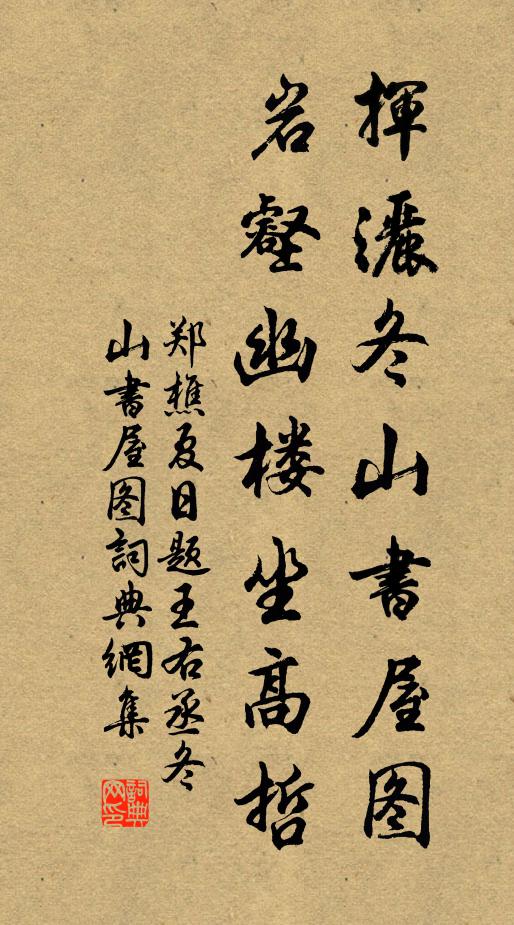 揮灑冬山書屋图
岩壑幽楼坐高哲
郑樵夏日题王右丞冬
山書屋图詞典網集
詞典网印